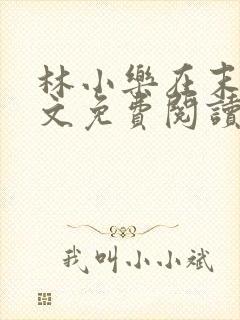 林小樂在末
文免費閱讀
我叫小小斌